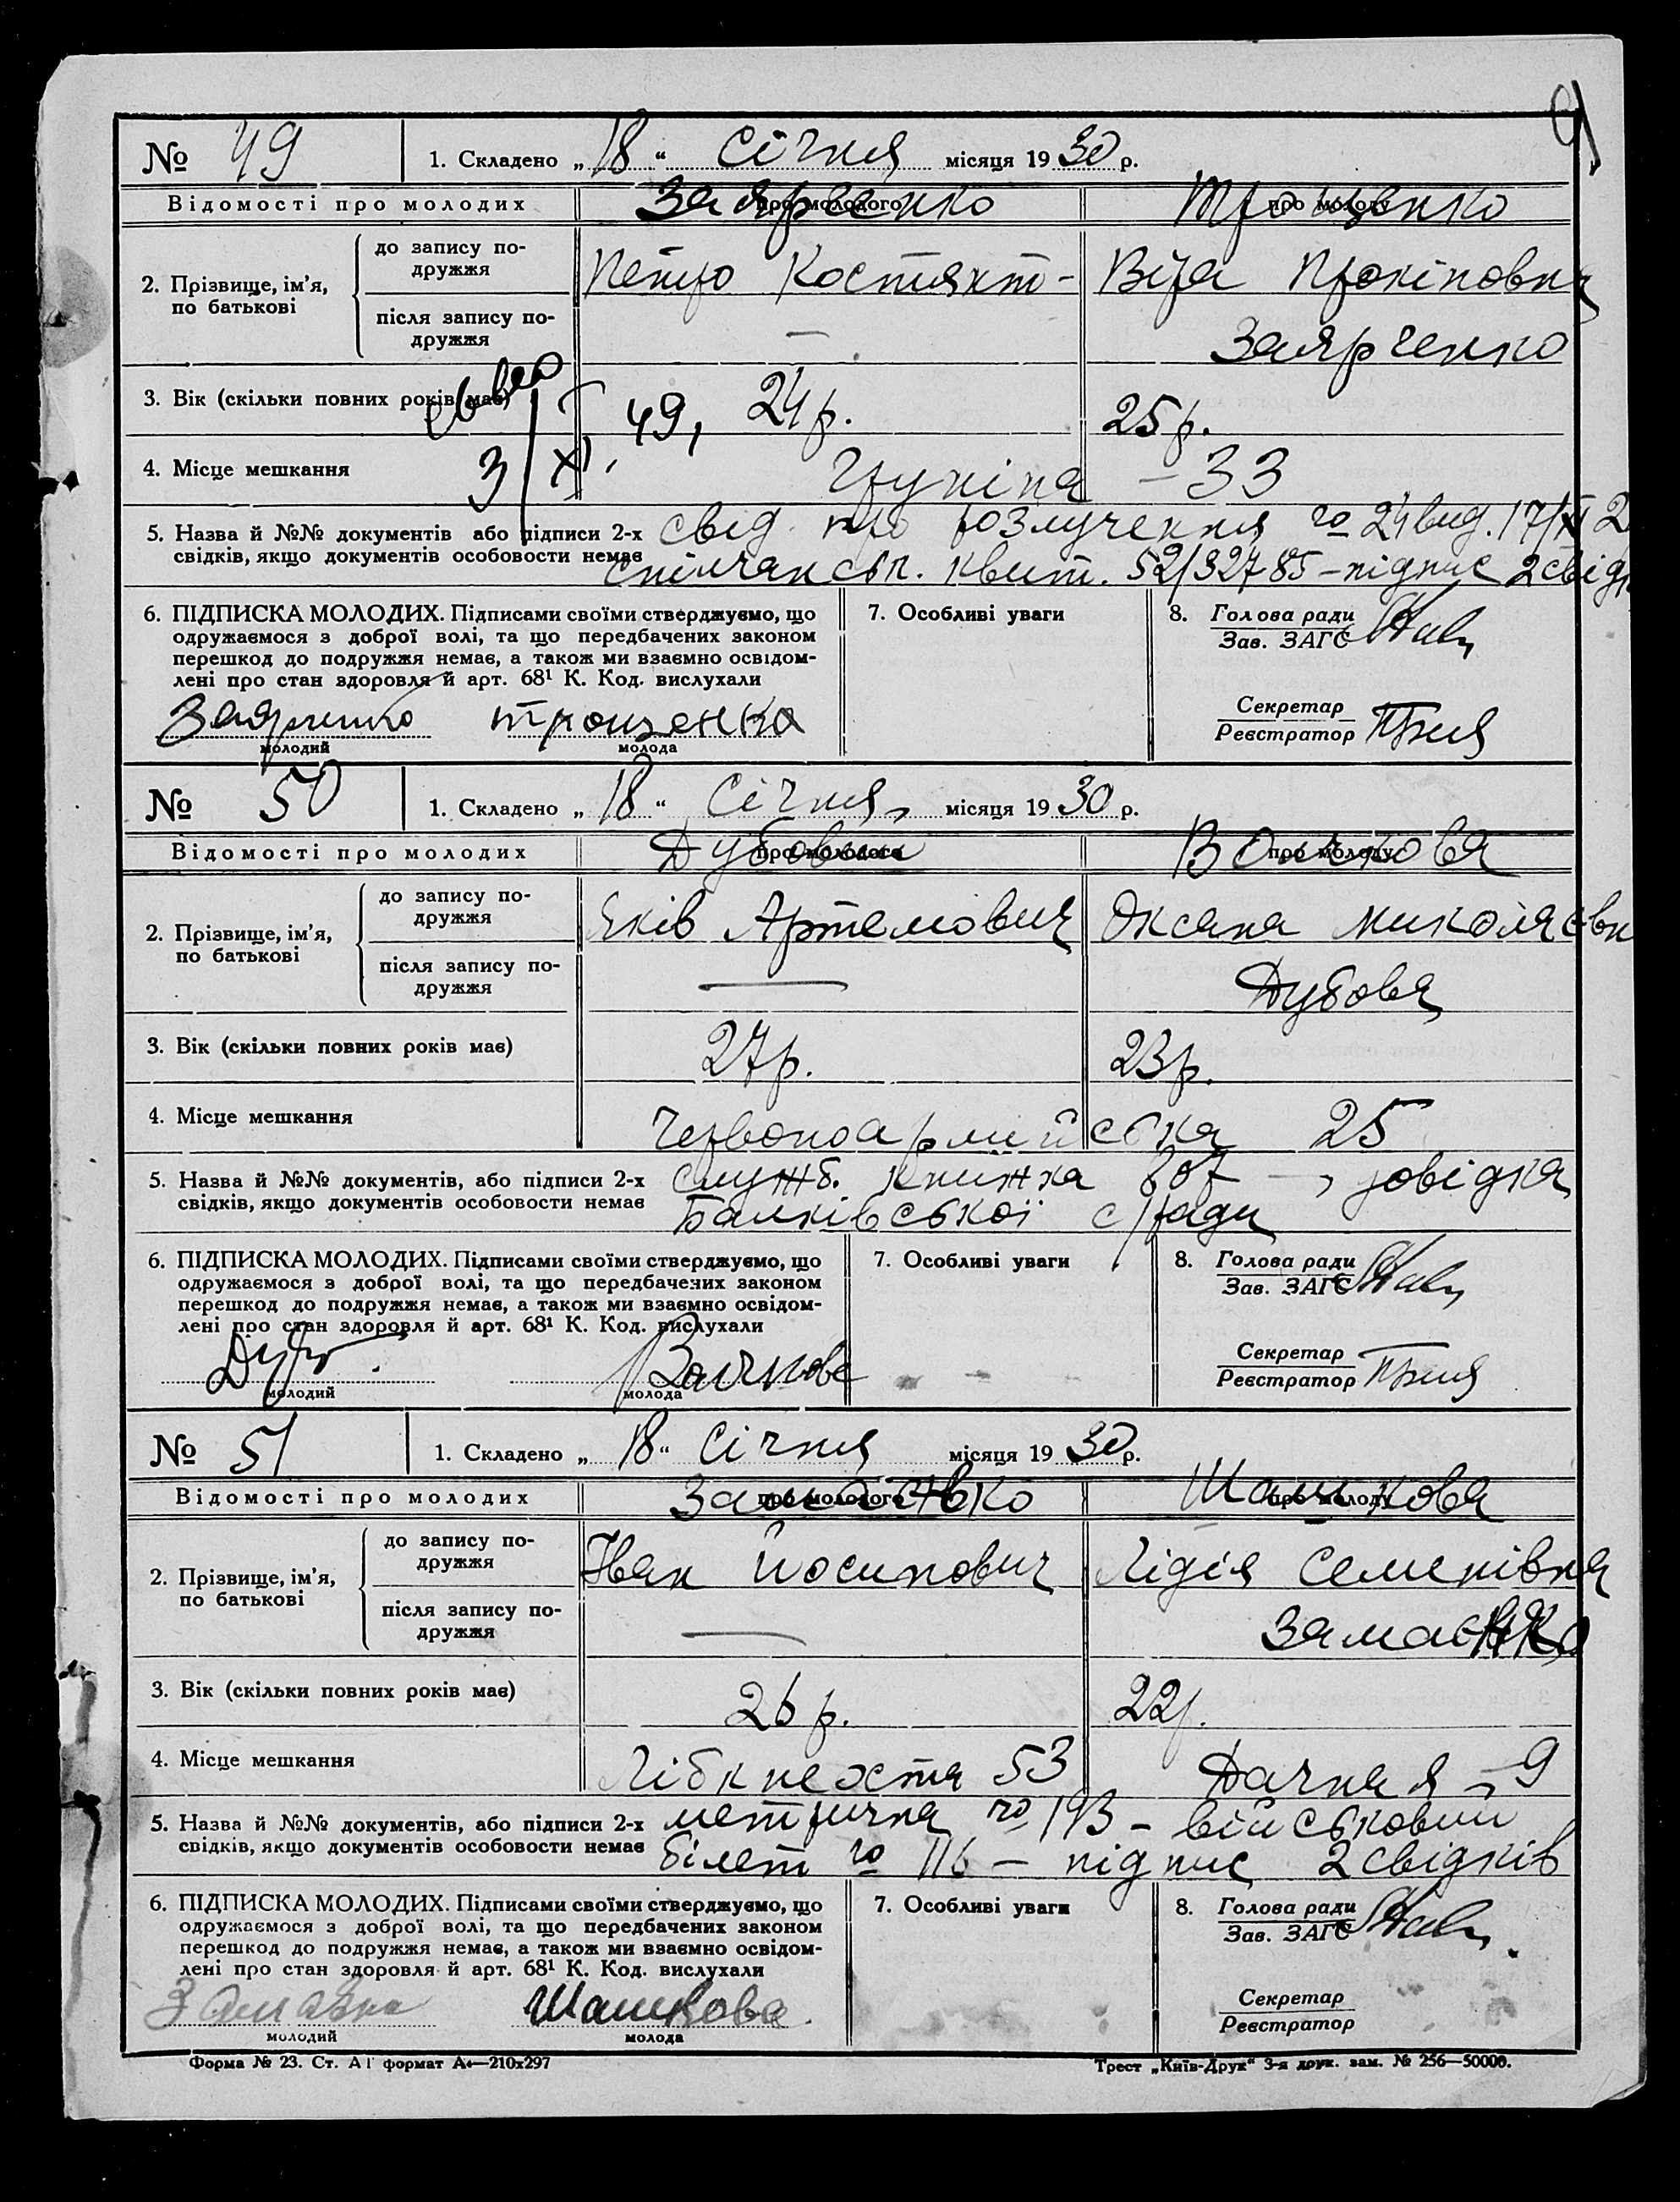 № 49 1. Складено „ 18 “ Січня місяця 19 30 р.
Відомості про молодих про молодого Заярченко про молоду Трощенко
2. Прізвище, ім’я, по батькові
до запису подружжя Петро Костянт- Віра Прокіповна
після запису по-дружжя — Заярченко
3. Вік (скільки повних років має) 49, 24 р. 25 р.
4. Місце мешкання 3/XI, – 33
5. Назва й №№ документів або підписи 2-х свід. про розлучення № 24 вид. 17/XI 2
свідків, якщо документів особовости немає спілчанськ. квит. 52/32785 – підпис 2 свідк
6. ПІДПИСКА МОЛОДИХ. Підписами своїми стверджуємо, що
одружаємося з доброї волі, та що передбачених законом
перешкод до подружжя немає, а також ми взаємно освідом-
лені про стан здоровля й арт. 68¹ К. Код. вислухали
7. Особливі уваги
8. Голова ради
Зав. ЗАГС
Секретар
Реєстратор
Заярченко трощенка
молодий молода
№ 50 1. Складено „ 18 “ Січня місяця 19 30 р.
Відомості про молодих про молодого про молоду Волчкова
2. Прізвище, ім’я, по батькові
до запису по-дружжя Яків Артемович Оксана Миколаєвн
після запису по-дружжя — Дубова
3. Вік (скільки повних років має) 27 р. 23 р.
4. Місце мешкання Червоноармійська 25
5. Назва й №№ документів, або підписи 2-х служб. книжка 807 – довідка
свідків, якщо документів особовости немає Балківської с/ради
6. ПІДПИСКА МОЛОДИХ. Підписами своїми стверджуємо, що
одружаємося з доброї волі, та що передбачених законом
перешкод до подружжя немає, а також ми взаємно освідом-
лені про стан здоровля й арт. 68¹ К. Код. вислухали
7. Особливі уваги
8. Голова ради
Зав. ЗАГС
Секретар
Реєстратор
Волчкова
молодий молода
№ 51 1. Складено „ 18 “ Січня місяця 19 30 р.
Відомості про молодих про молодого про молоду Шашкова
2. Прізвище, ім’я, по батькові
до запису по-дружжя Іван Йосипович Лідія Семенівна
після запису по-дружжя —
3. Вік (скільки повних років має) 26 р. 22 р.
4. Місце мешкання Лібкнехта 53 Дачная – 9
5. Назва й №№ документів, або підписи 2-х метрична № 193 – військовий
свідків, якщо документів особовости немає білет № 116 – підпис 2 свідків
6. ПІДПИСКА МОЛОДИХ. Підписами своїми стверджуємо, що
одружаємося з доброї волі, та що передбачених законом
перешкод до подружжя немає, а також ми взаємно освідом-
лені про стан здоровля й арт. 68¹ К. Код. вислухали
7. Особливі уваги
8. Голова ради
Зав. ЗАГС
Секретар
Реєстратор
Шашкова
молодий молода
Форма № 23. Ст. А1 формат А4—210х297 Трест „Київ-Друк“ 3-я друк. зам. № 256—50000.